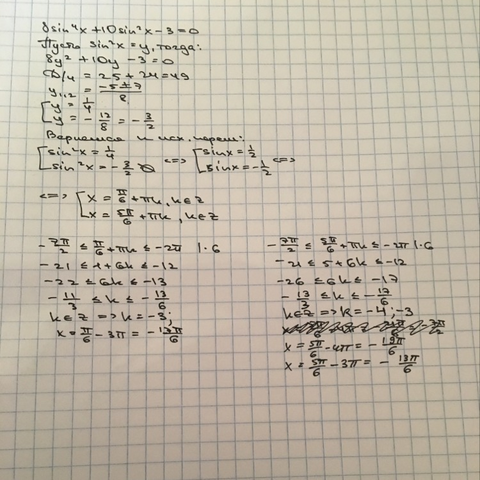 8sin⁴x + 10sin²x - 3 = 0
Пусть sin²x = y, тогда:
8y² + 10y - 3 = 0
D/4 = 25 + 24 = 49
y₁,₂ = (-5 ± 7)/8
[ y = 1/4
[ y = -12/8 = -3/2
Вернемся к исх. перем:
[ sin²x = 1/4
[ sin²x = -3/2 <=> [ sinx = 1/2
[ sinx = -1/2 <=>
<=> [ x = π/6 + πk, k∈Z
[ x = 5π/6 + πk, k∈Z
-7π/2 ≤ π/6 + πk ≤ -2π |·6
-21 ≤ 1 + 6k ≤ -12
-22 ≤ 6k ≤ -13
-11/3 ≤ k ≤ -13/6
k∈Z => k = -3;
x = π/6 - 3π = -17π/6
-7π/2 ≤ 5π/6 + πk ≤ -2π |·6
-21 ≤ 5 + 6k ≤ -12
-26 ≤ 6k ≤ -17
-13/3 ≤ k ≤ -17/6
k∈Z => k = -4; -3
x = 5π/6 - 4π = -19π/6
x = 5π/6 - 3π = -13π/6